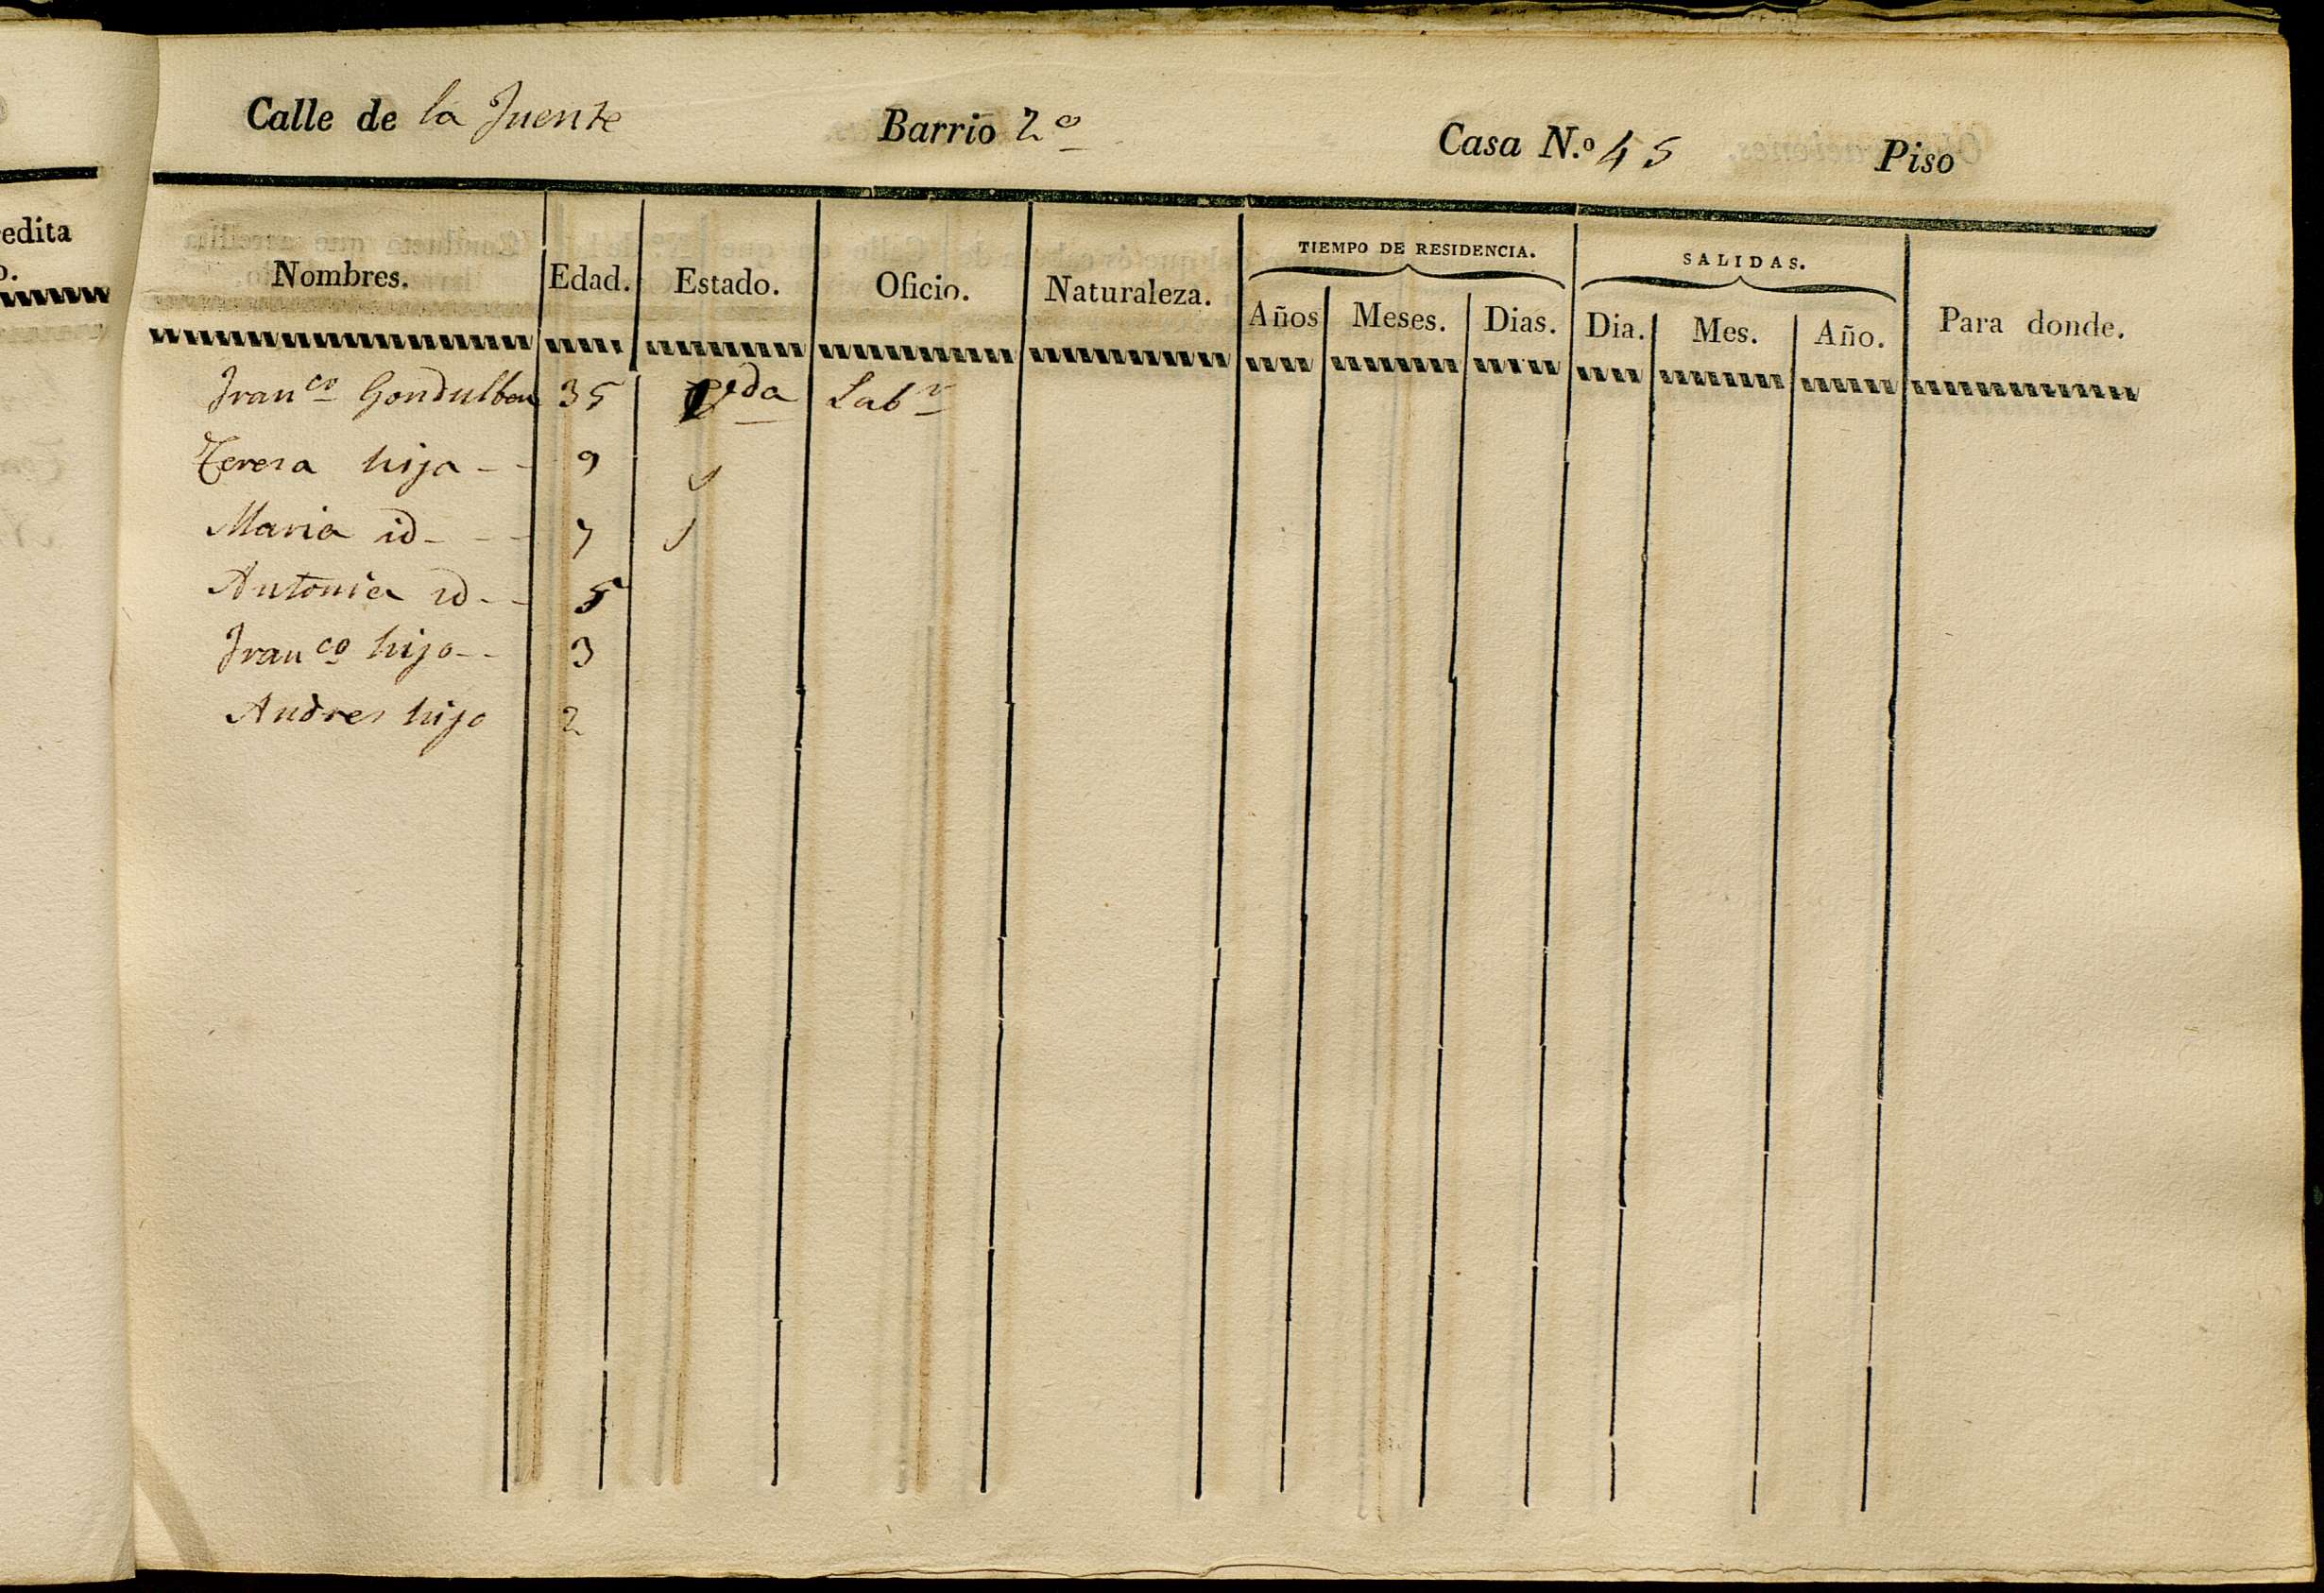 edita
o.
Calle de la Fuente Barrio 2º Casa N.º 45 Piso
Nombres. Edad. Estado. Oficio. Naturaleza. TIEMPO DE RESIDENCIA. SALIDAS. Para donde.
Años Meses. Dias. Dia. Mes. Año.
Franco Gondulbeu 35 Labr
Teresa hija - - 9
Maria id - - - 7
Antonia id - - 5
Franco hijo - - 3
Andres hijo 2